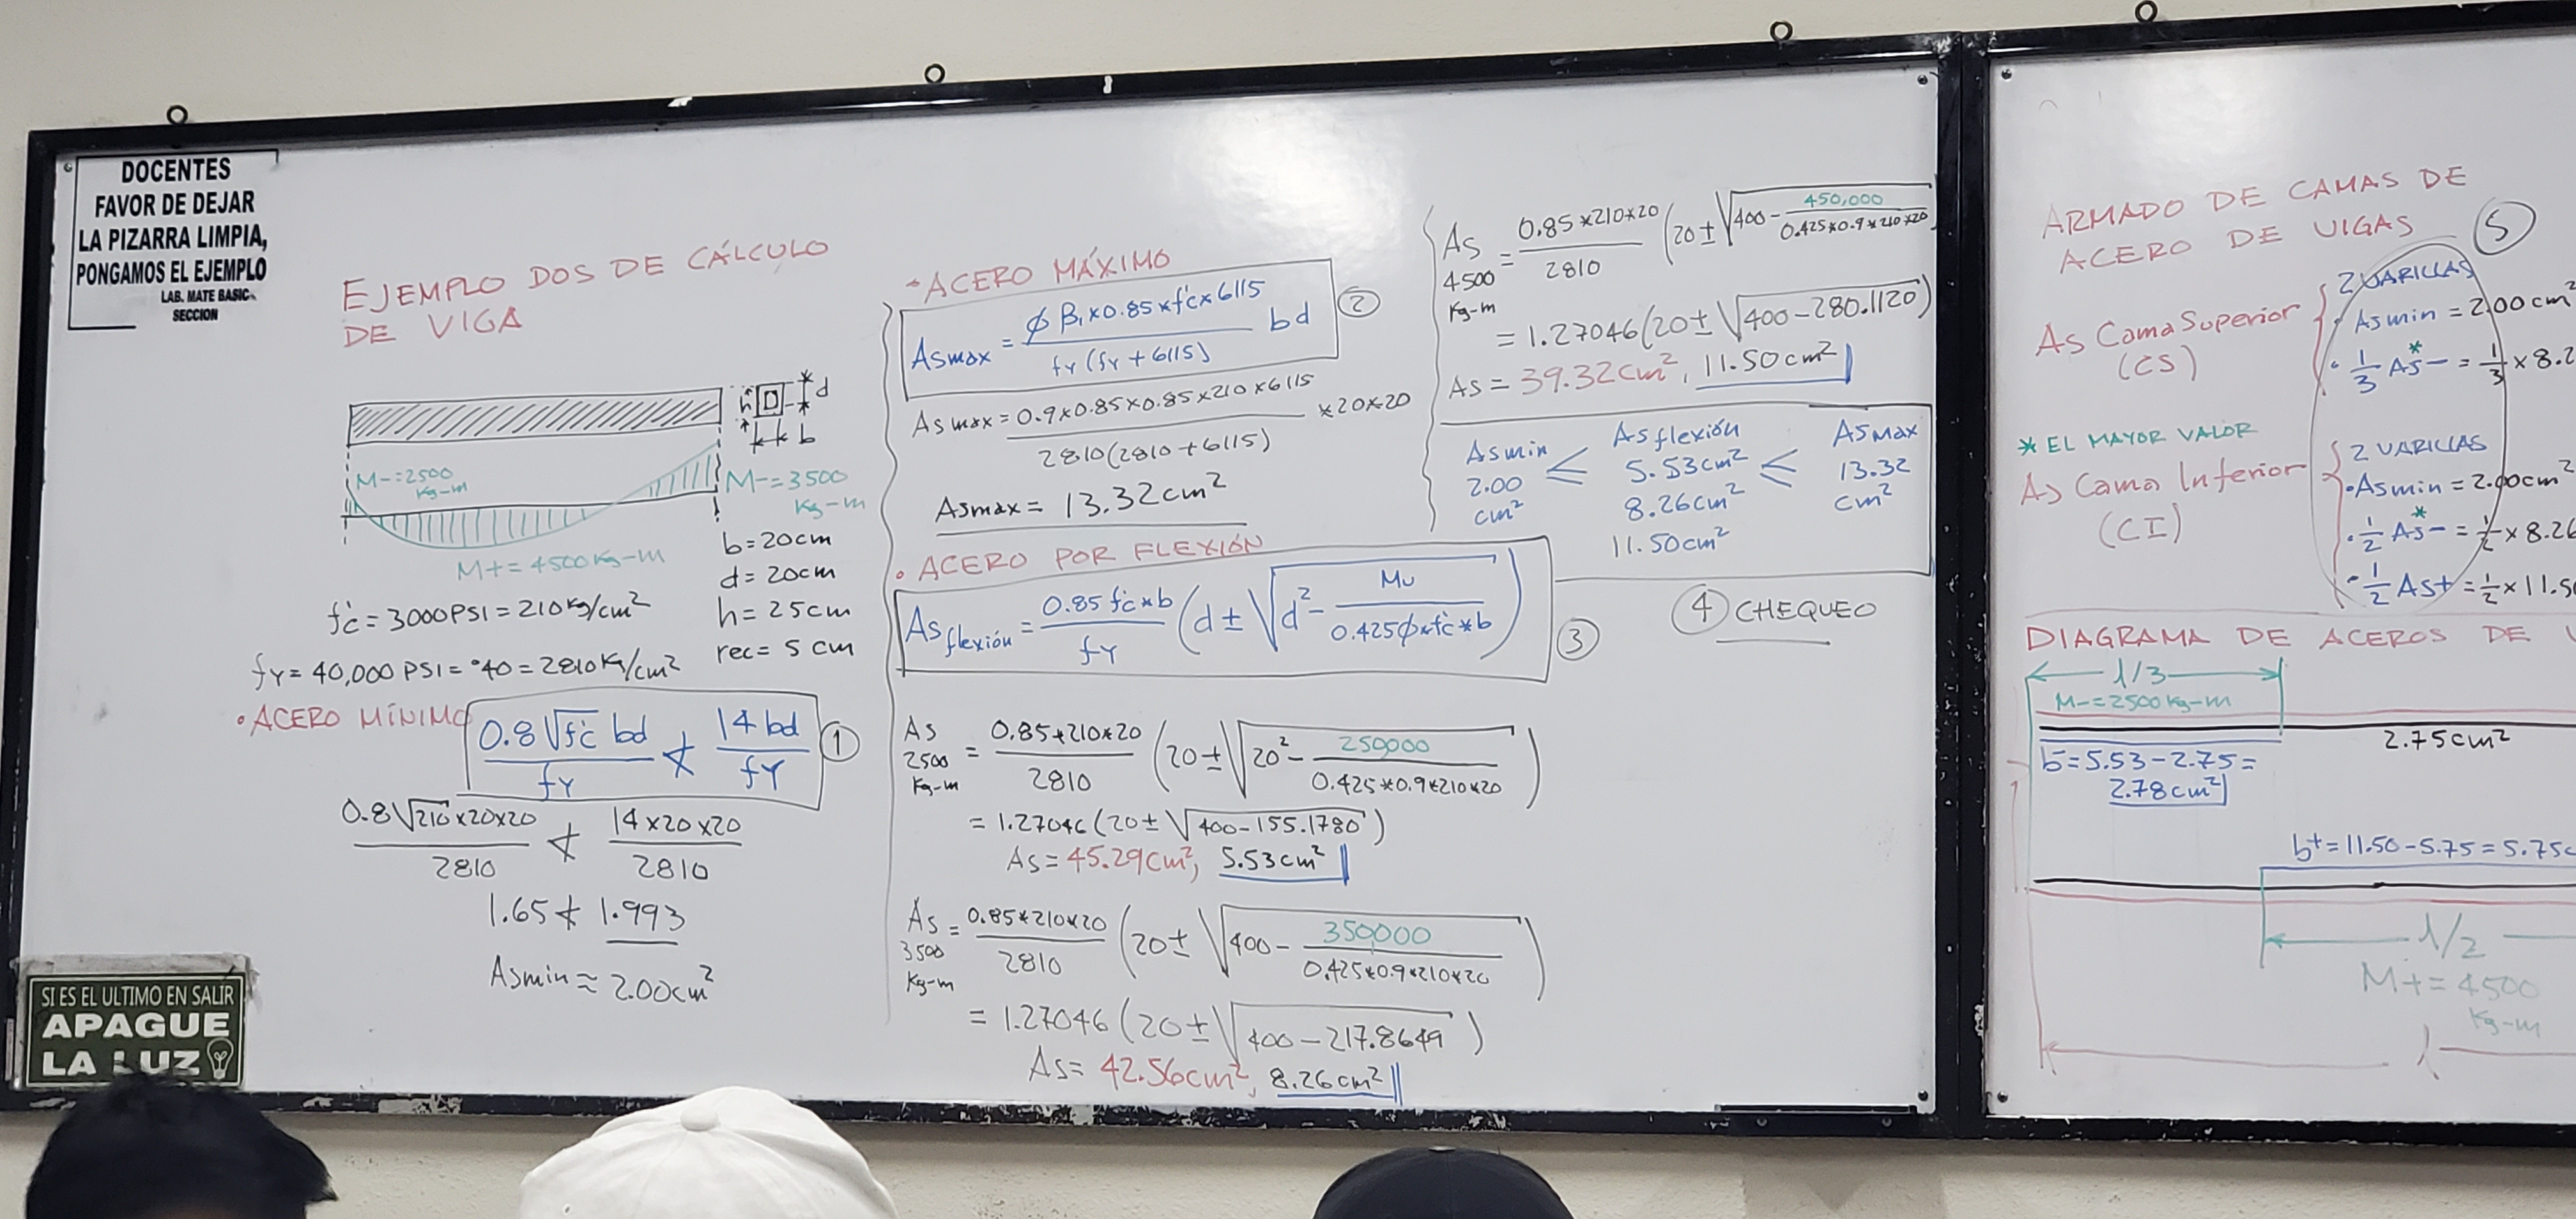 DOCENTES
FAVOR DE DEJAR
LA PIZARRA LIMPIA,
PONGAMOS EL EJEMPLO
LAB. MATE BASIC
SECCION
EJEMPLO DOS DE CÁLCULO
DE VIGA
h d
b
M-=2500
Kg-m
M-=3500
Kg-m
M+=4500 Kg-m
b=20cm
d=20cm
h=25cm
rec=5cm
f'c=3000PSI=210Kg/cm²
fy=40,000 PSI=°40=2810Kg/cm²
• ACERO MÍNIMO
0.8√f'c bd / fy ≮ 14bd / fy ①
0.8√210×20×20 / 2810 ≮ 14×20×20 / 2810
1.65 ≮ 1.993
Asmin ≈ 2.00cm²
SI ES EL ULTIMO EN SALIR
APAGUE
LA LUZ
• ACERO MÁXIMO
Asmax = φβ₁×0.85×f'c×6115 / fy(fy+6115) bd ②
Asmax = 0.9×0.85×0.85×210×6115 / 2810(2810+6115) ×20×20
Asmax = 13.32cm²
• ACERO POR FLEXIÓN
As flexión = 0.85f'c*b / fy (d±√d²-Mu / 0.425φ*f'c*b) ③
As 2500 Kg-m = 0.85*210*20 / 2810 (20±√20²-250,000 / 0.425*0.9*210*20)
= 1.27046(20±√400-155.1780)
As=45.29cm², 5.53cm²
As 3500 Kg-m = 0.85*210*20 / 2810 (20±√400-350,000 / 0.425*0.9*210*20)
= 1.27046(20±√400-217.8649)
As=42.56cm², 8.26cm²
As 4500 Kg-m = 0.85*210*20 / 2810 (20±√400-450,000 / 0.425*0.9*210*20)
= 1.27046(20±√400-280.1120)
As=39.32cm², 11.50cm²
Asmin As flexión Asmax
2.00 ≤ 5.53cm² ≤ 13.32
cm² 8.26cm² cm²
11.50cm²
④ CHEQUEO
ARMADO DE CAMAS DE
ACERO DE VIGAS ⑤
As Cama Superior
(CS)
2 VARILLAS
• Asmin = 2.00cm²
• 1/3 As*- = 1/3 × 8.2
* EL MAYOR VALOR
As Cama Inferior
(CI)
2 VARILLAS
• Asmin = 2.00cm²
• 1/2 As*- = 1/2 × 8.26
• 1/2 As+ = 1/2 × 11.5
DIAGRAMA DE ACEROS DE
l/3
M-=2500 Kg-m
2.75cm²
b-=5.53-2.75=
2.78cm²
b+=11.50-5.75=5.75c
l/2
M+=4500
Kg-m
l